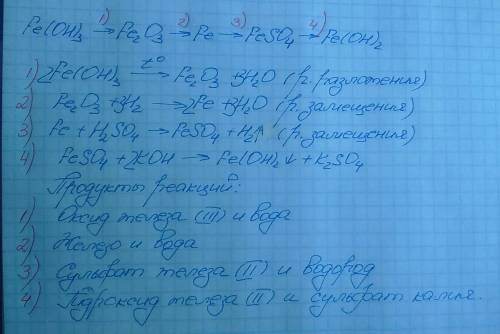 Fe(OH)₃ →¹⁾ Fe₂O₃ →²⁾ Fe →³⁾ FeSO₄ →⁴⁾ Fe(OH)₂
1) 2Fe(OH)₃ —t°→ Fe₂O₃ + 3H₂O (р. разложения)
2) Fe₂O₃ + 3H₂ → 2Fe + 3H₂O (р. замещения)
3) Fe + H₂SO₄ → FeSO₄ + H₂↑ (р. замещения)
4) FeSO₄ + 2KOH → Fe(OH)₂↓ + K₂SO₄
Продукты реакций:
1) Оксид железа (III) и вода
2) Железо и вода
3) Сульфат железа (II) и водород
4) Гидроксид железа (II) и сульфат калия.